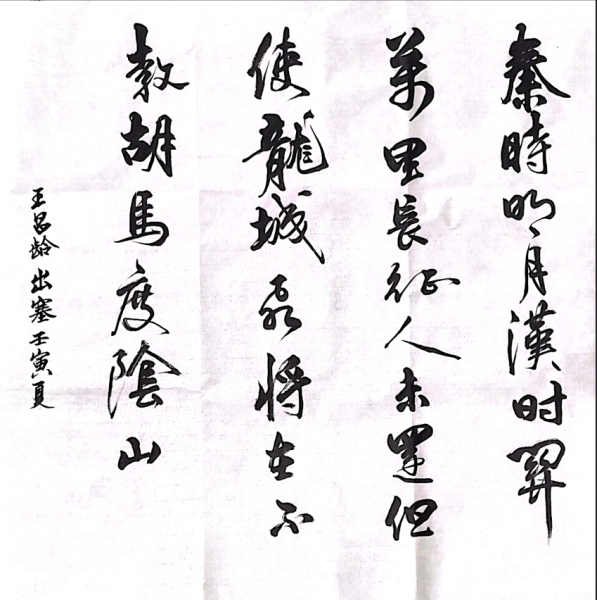 秦時明月漢时關
萬里長征人未還但
使龍城飛將在不
教胡馬度陰山
王昌龄出塞壬寅夏